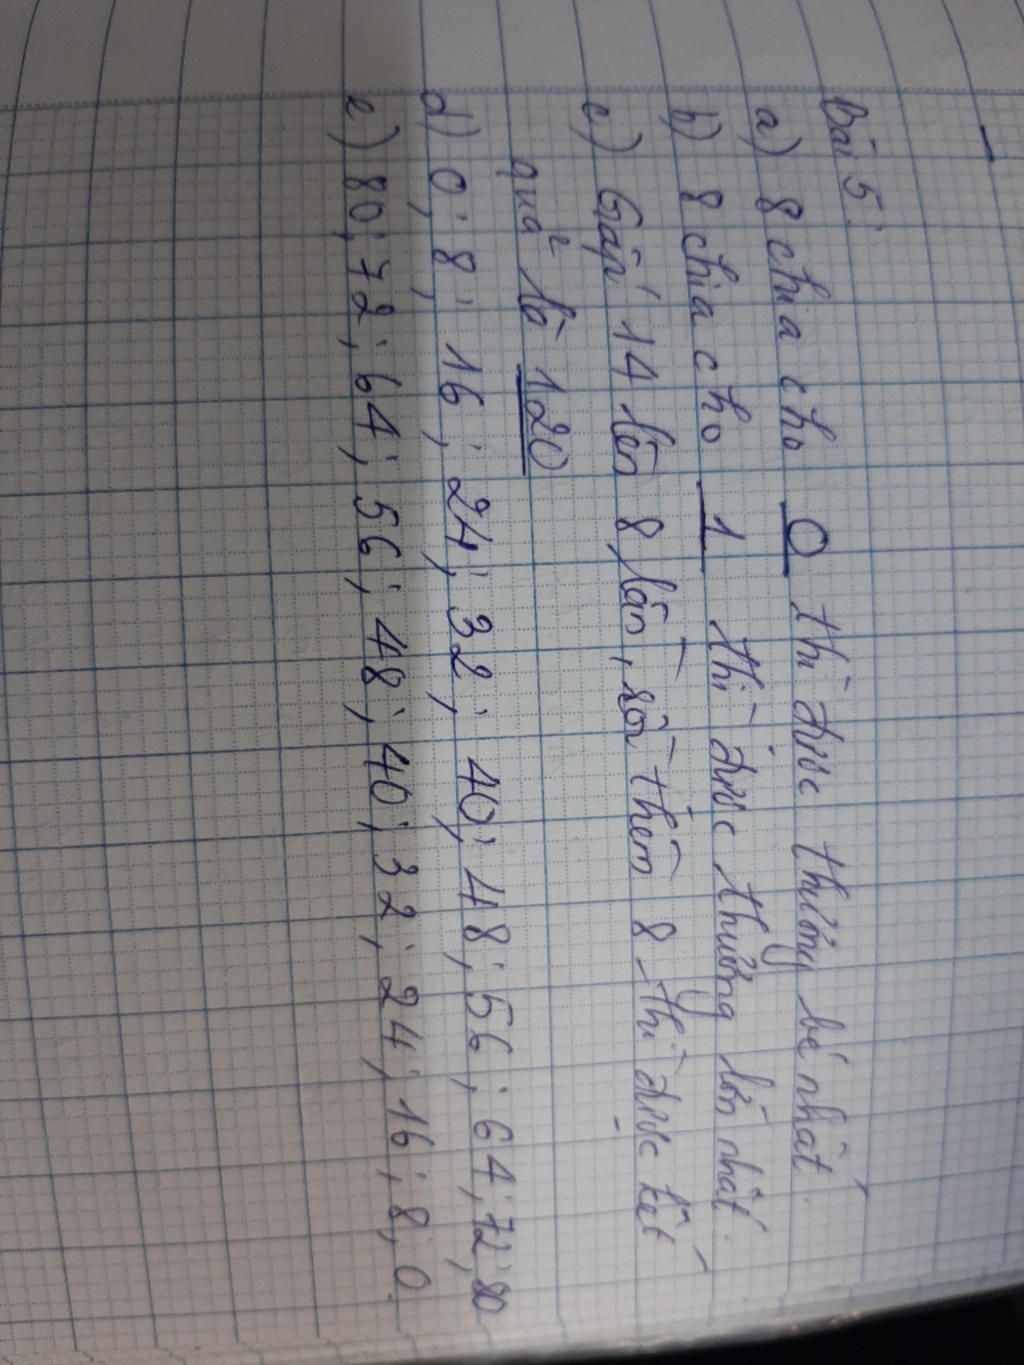 Bài 5:
a) 8 chia cho 0 thì được thương bé nhất.
b) 8 chia cho 1 thì được thương lớn nhất.
c) Gấp 14 lên 8 lần, rồi thêm 8 thì được kết
quả là 120
d) 0; 8; 16; 24; 32; 40; 48; 56; 64; 72; 80
e) 80; 72; 64; 56; 48; 40; 32; 24; 16; 8; 0